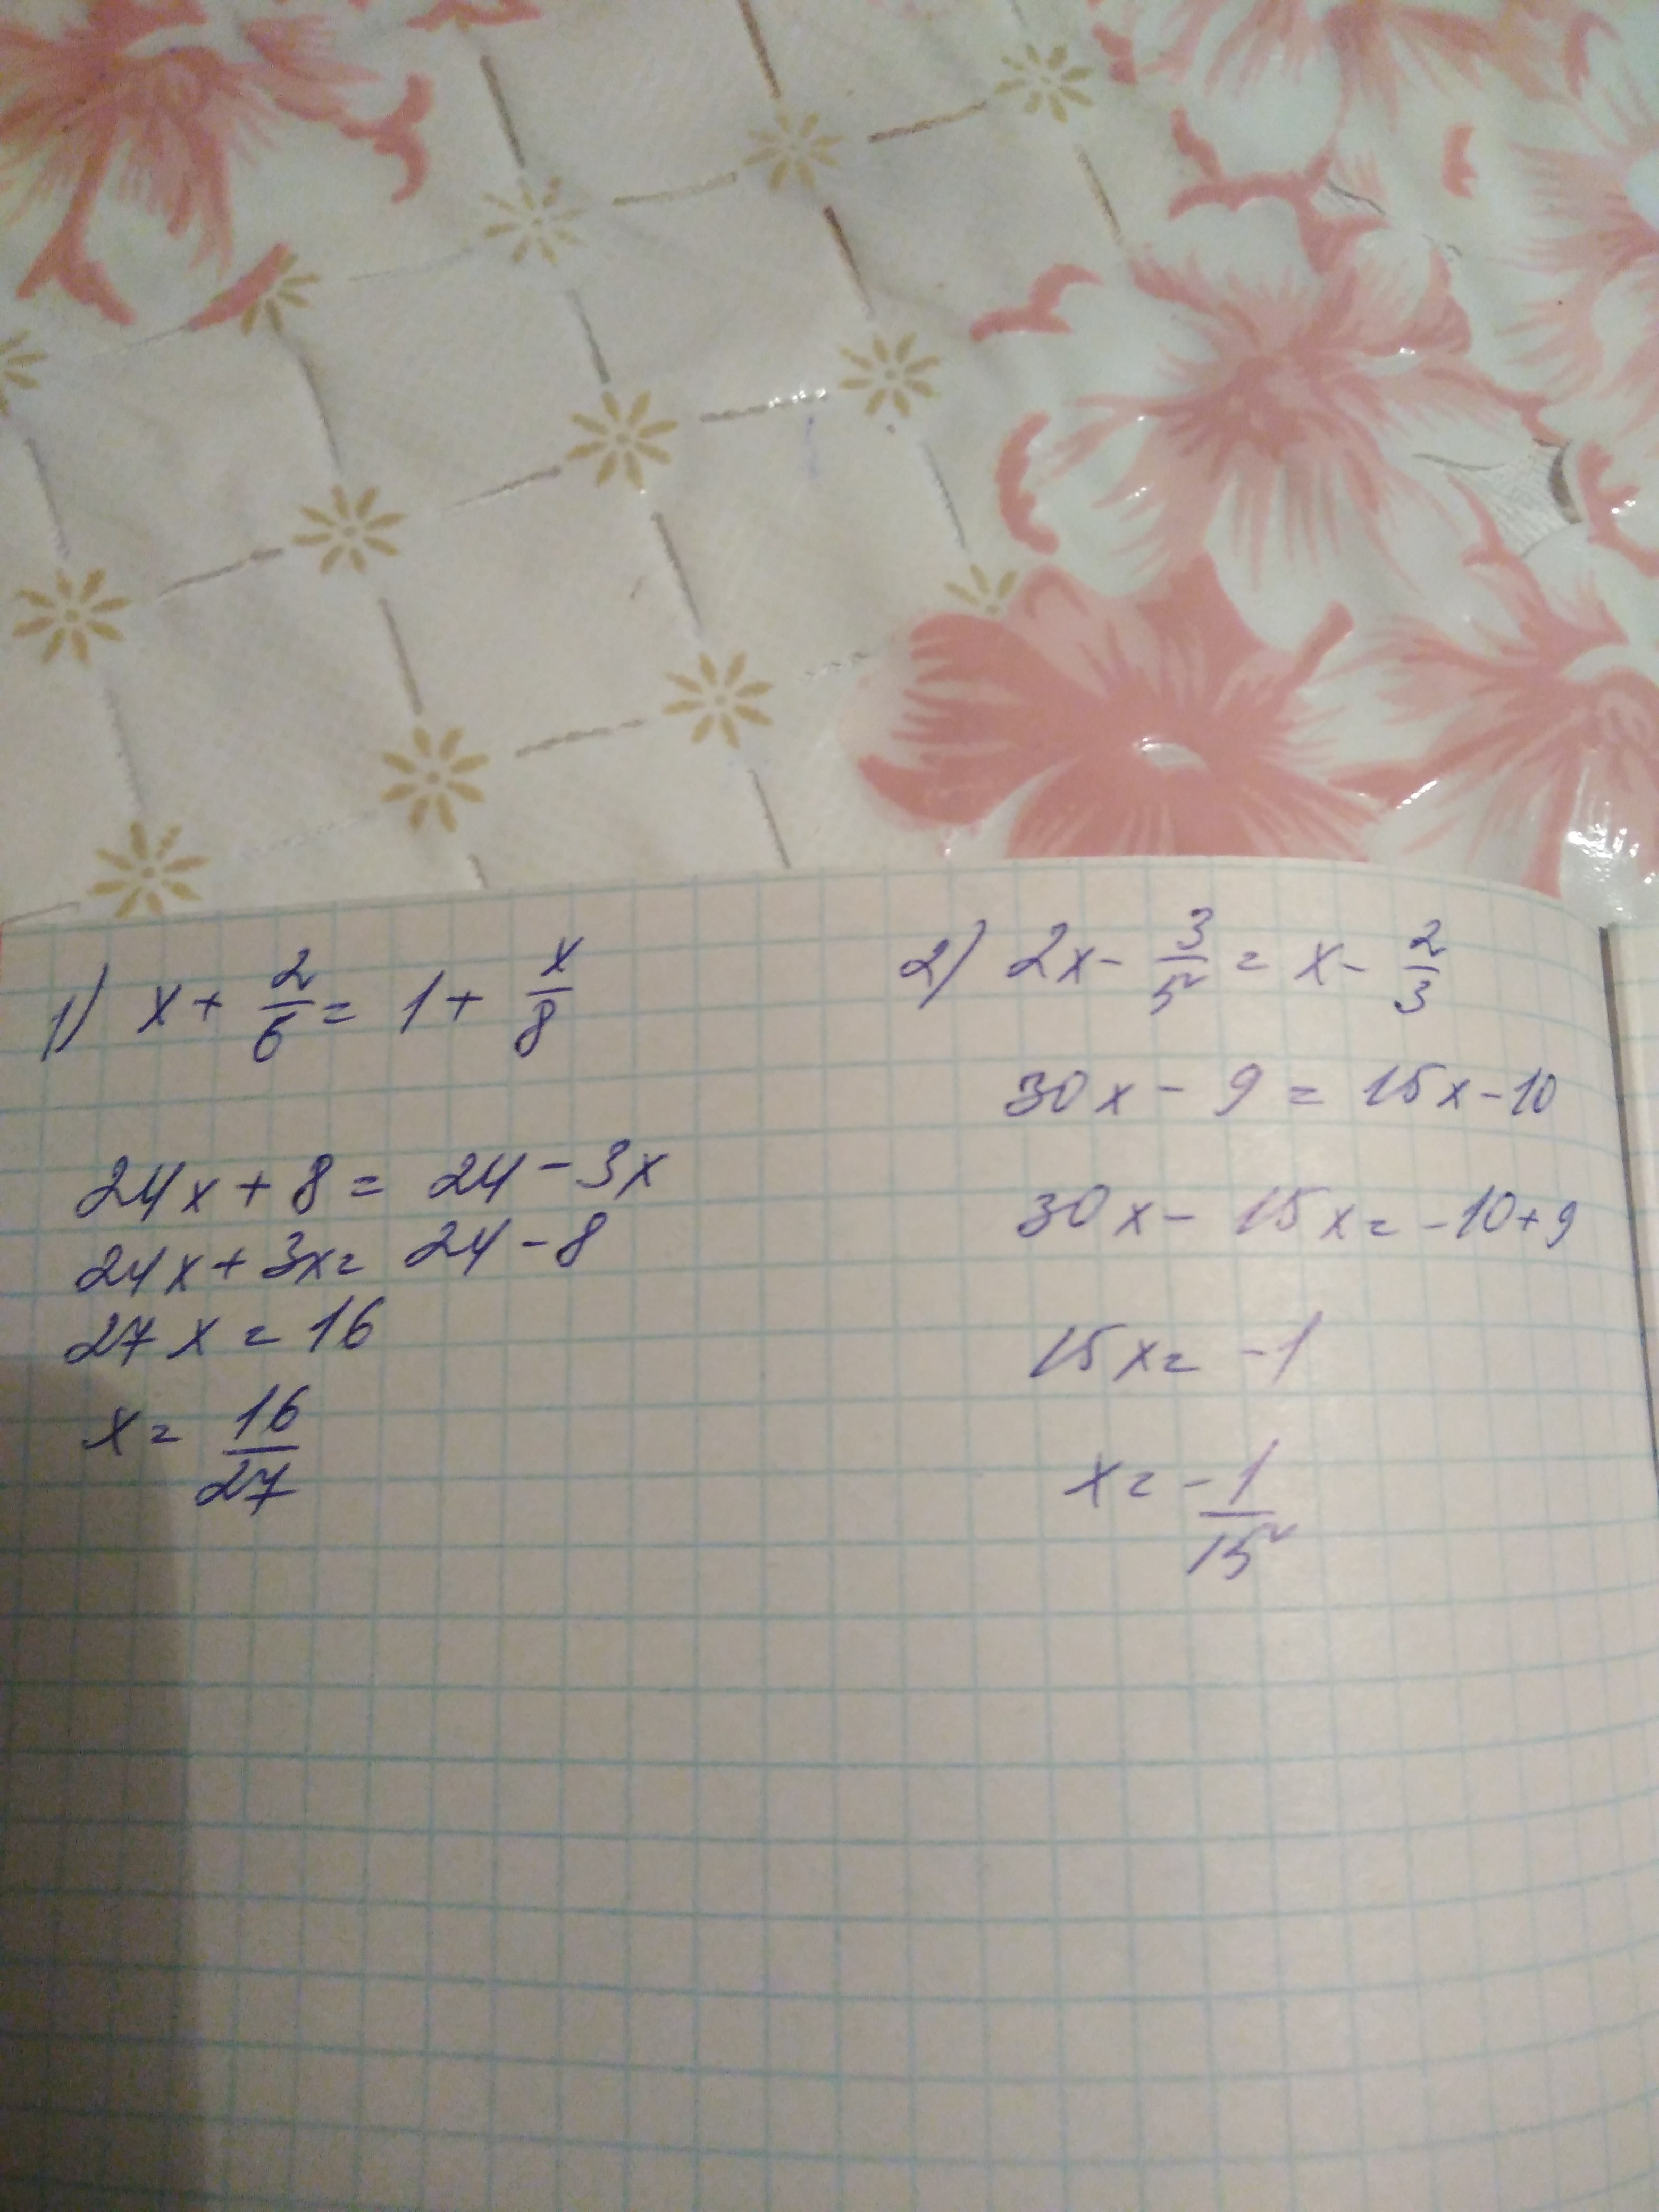 1) x + 2/6 = 1 + x/8
24x + 8 = 24 - 3x
24x + 3x = 24 - 8
27x = 16
x = 16/27
2) 2x - 3/5 = x - 2/3
30x - 9 = 15x - 10
30x - 15x = -10 + 9
15x = -1
x = -1/15